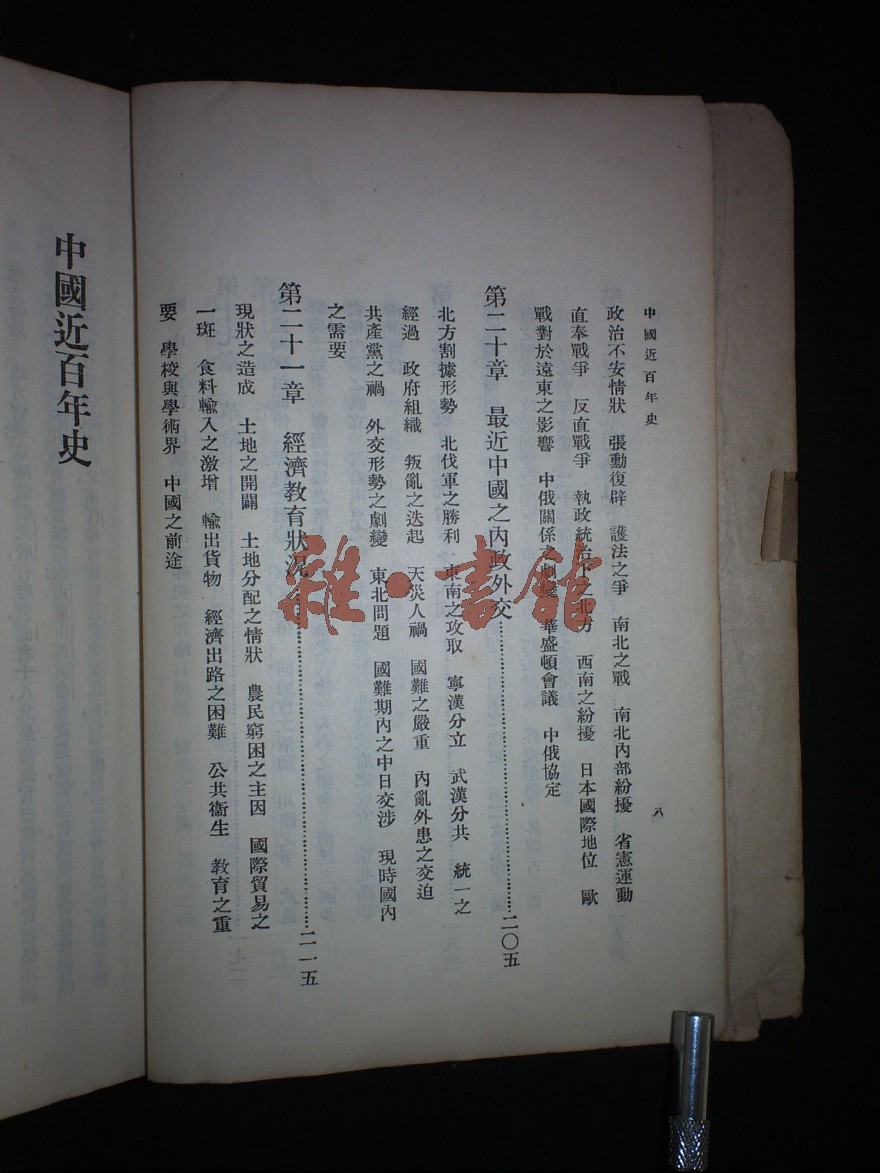 中國近百年史
八
政治不安情狀 張勳復辟 護法之爭 南北之戰 南北內部紛擾 省憲運動
直奉戰爭 反直戰爭 執政統治下之北方 西南之紛擾 日本國際地位 歐
戰對於遠東之影響 中俄關係之劇變 華盛頓會議 中俄協定
第二十章 最近中國之內政外交……二〇五
北方割據形勢 北伐軍之勝利 東南之攻取 寧漢分立 武漢分共 統一之
經過 政府組織 叛亂之迭起 天災人禍 國難之嚴重 內亂外患之交迫
共產黨之禍 外交形勢之劇變 東北問題 國難期內之中日交涉 現時國內
之需要
第二十一章 經濟教育狀況……二一五
現狀之造成 土地之開闢 土地分配之情狀 農民窮困之主因 國際貿易之
一斑 食料輸入之激增 輸出貨物 經濟出路之困難 公共衞生 教育之重
要 學校與學術界 中國之前途
中國近百年史
雜·書館